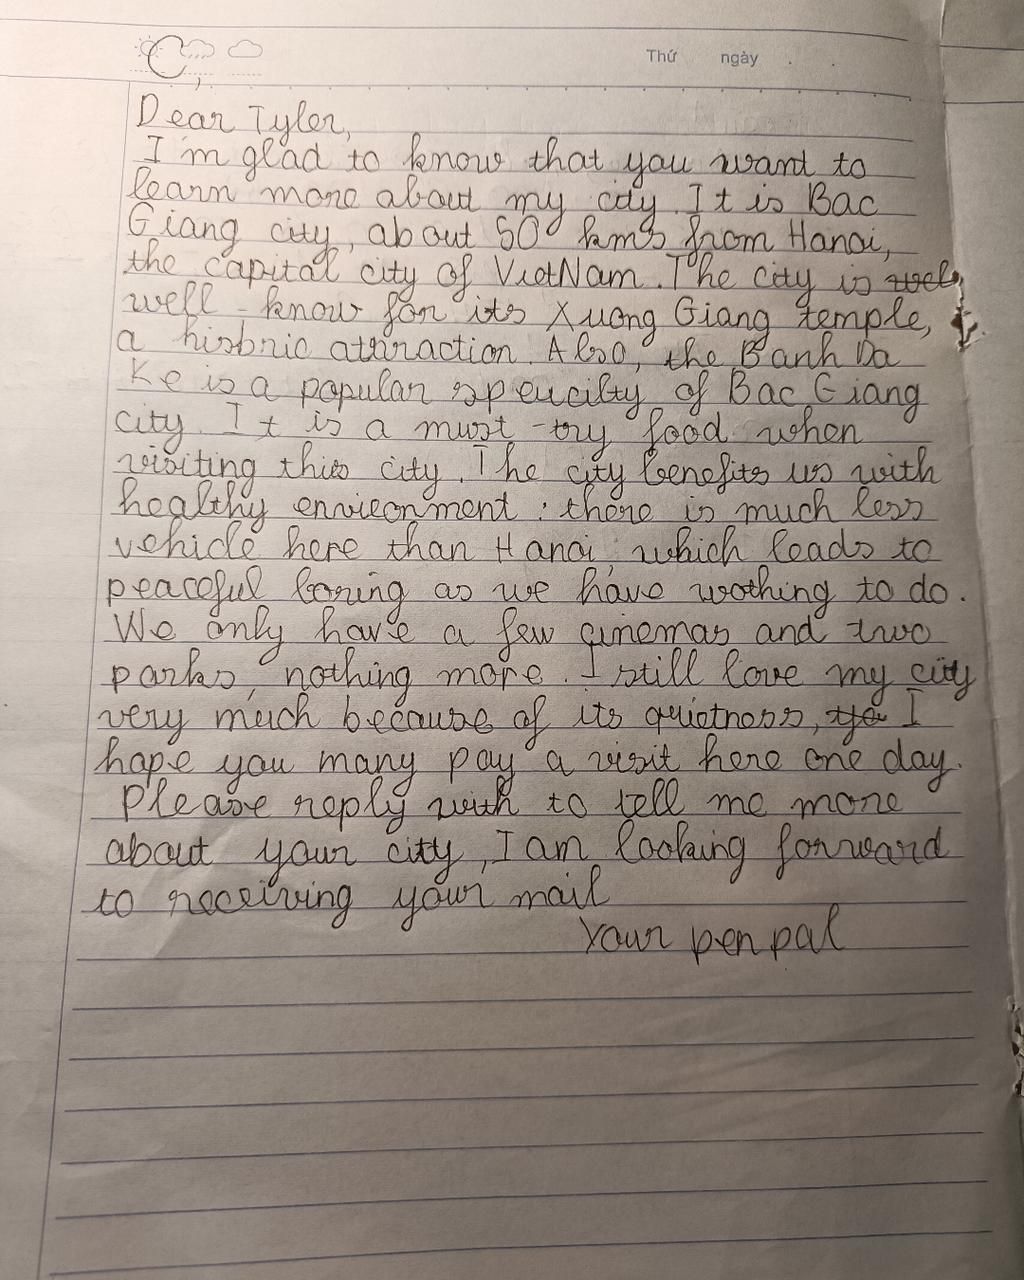 Thứ ngày . .
Dear Tyler,
I'm glad to know that you want to
learn more about my city. It is Bac
Giang city, about 50 kms from Hanoi,
the capital city of VietNam. The city is
well - know for its Xuong Giang temple,
a historic attraction. Also, the Banh Da
Ke is a popular speucilty of Bac Giang
city. It is a must-try food when
visiting this city. The city benefits us with
healthy envieonment : there is much less
vehicle here than Hanoi, which leads to
peaceful boring as we have wothing to do.
We only have a few cinemas and two
parks, nothing more. I still love my city
very much because of its quietness, I
hope you many pay a visit here one day.
Please reply with to tell me more
about your city, I am looking forward
to receiving your mail
Your pen pal